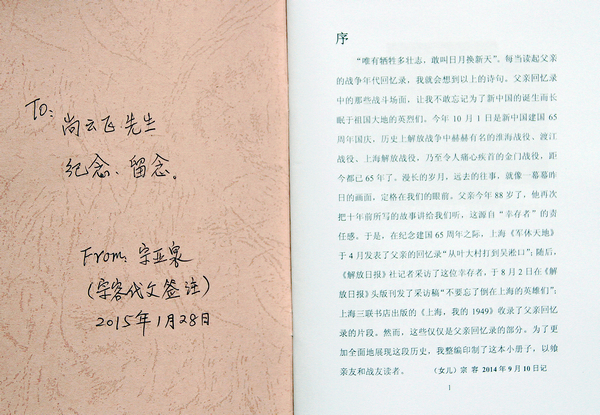 To:
尚云飞先生
纪念、留念。
From: 宗亚泉
(宗容代父签注)
2015年1月28日
序
“唯有牺牲多壮志，敢叫日月换新天”。每当读起父亲
的战争年代回忆录，我就会想到以上的诗句。父亲回忆录
中的那些战斗场面，让我不敢忘记为了新中国的诞生而长
眠于祖国大地的英烈们。今年 10 月 1 日是新中国建国 65
周年国庆，历史上解放战争中赫赫有名的淮海战役、渡江
战役、上海解放战役，乃至令人痛心疾首的金门战役，距
今都已 65 年了。漫长的岁月，远去的往事，就像一幕幕昨
日的画面，定格在我们的眼前。父亲今年 88 岁了，他再次
把十年前所写的故事讲给我们听，这源自“幸存者”的责
任感。于是，在纪念建国 65 周年之际，上海《军休天地》
于 4 月发表了父亲的回忆录“从叶大村打到吴淞口”；随后，
《解放日报》社记者采访了这位幸存者，于 8 月 2 日在《解
放日报》头版刊发了采访稿“不要忘了倒在上海的英雄们”；
上海三联书店出版的《上海，我的 1949》收录了父亲回忆
录的片段。然而，这些仅仅是父亲回忆录的部分。为了更
加全面地展现这段历史，我整编印制了这本小册子，以飨
亲友和战友读者。 （女儿）宗 容 2014 年 9 月 10 日记
1